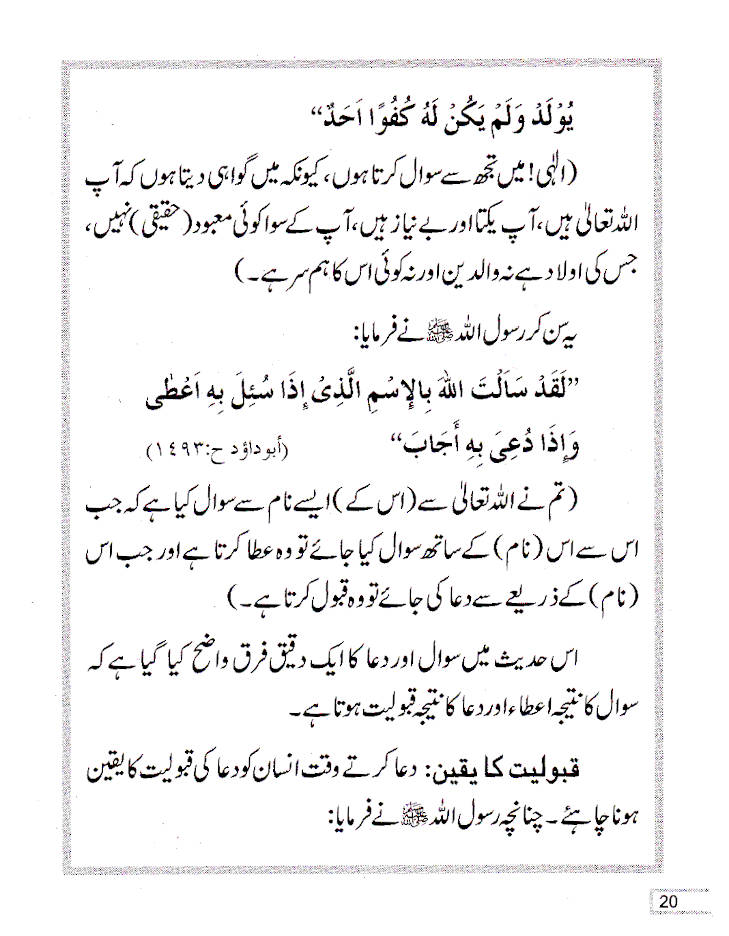 یُوْلَدْ وَلَمْ یَکُنْ لَهُ کُفُوًا اَحَدٌ“
(الٰہی! میں تجھ سے سوال کرتا ہوں، کیونکہ میں گواہی دیتا ہوں کہ آپ
اللہ تعالیٰ ہیں، آپ یکتا اور بے نیاز ہیں، آپ کے سوا کوئی معبود (حقیقی) نہیں،
جس کی اولاد ہے نہ والدین اور نہ کوئی اس کا ہم سر ہے۔)
یہ سن کر رسول اللہ ﷺ نے فرمایا:
”لَقَدْ سَاَلْتَ اللّٰہَ بِالْاِسْمِ الَّذِیْ اِذَا سُئِلَ بِهِ اَعْطٰی
وَإِذَا دُعِیَ بِهِ أَجَابَ“ (أبوداؤد ح:١٤٩٣)
(تم نے اللہ تعالیٰ سے (اس کے) ایسے نام سے سوال کیا ہے کہ جب
اس سے اس (نام) کے ساتھ سوال کیا جائے تو وہ عطا کرتا ہے اور جب اس
(نام) کے ذریعے سے دعا کی جائے تو وہ قبول کرتا ہے۔)
اس حدیث میں سوال اور دعا کا ایک دقیق فرق واضح کیا گیا ہے کہ
سوال کا نتیجہ اعطاء اور دعا کا نتیجہ قبولیت ہوتا ہے۔
قبولیت کا یقین: دعا کرتے وقت انسان کو دعا کی قبولیت کا یقین
ہونا چاہئے۔ چنانچہ رسول اللہ ﷺ نے فرمایا:
20